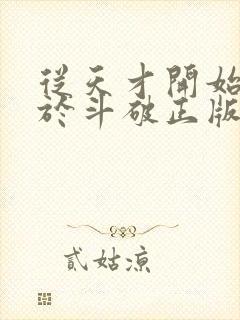 從天才開始
於斗破正版
貳姑涼